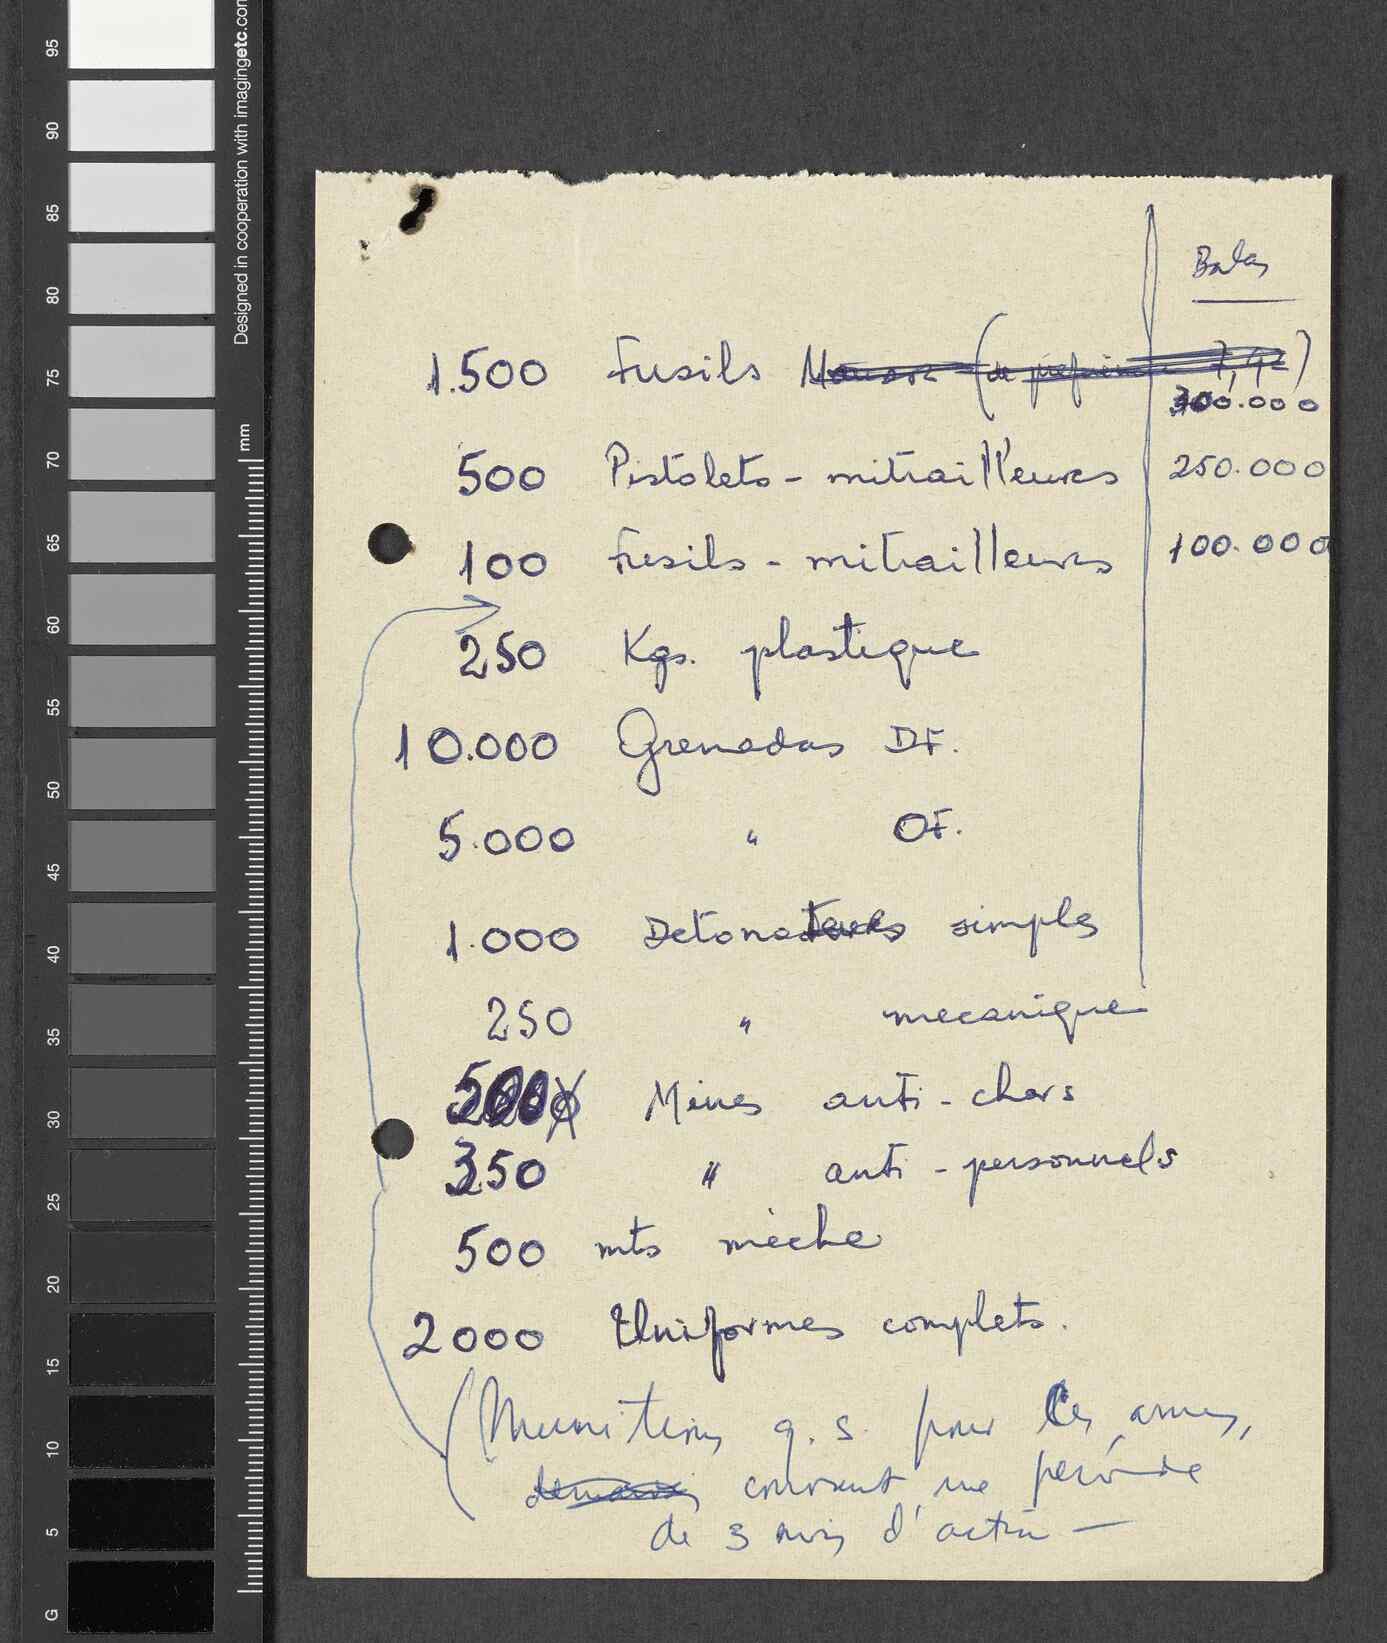 Designed in cooperation with imagingetc.com
mm
95
90
85
80
75
70
65
60
55
50
45
40
35
30
25
20
15
10
5
G
Balas
1.500 Fusils Mauser (de préférence 7,92)
300.000
500 Pistolets - mitrailleures 250.000
100 Fusils - mitrailleurs 100.000
250 Kgs. plastique
10.000 Grenadas DF.
5.000 " OF.
1.000 Detonateurs simples
250 " mecanique
500 Mines anti - chars
350 " anti - personnels
500 mts mèche
2000 Uniformes complets.
(Munitions q. s. pour les armes,
couvrant une période
de 3 mois d'action —